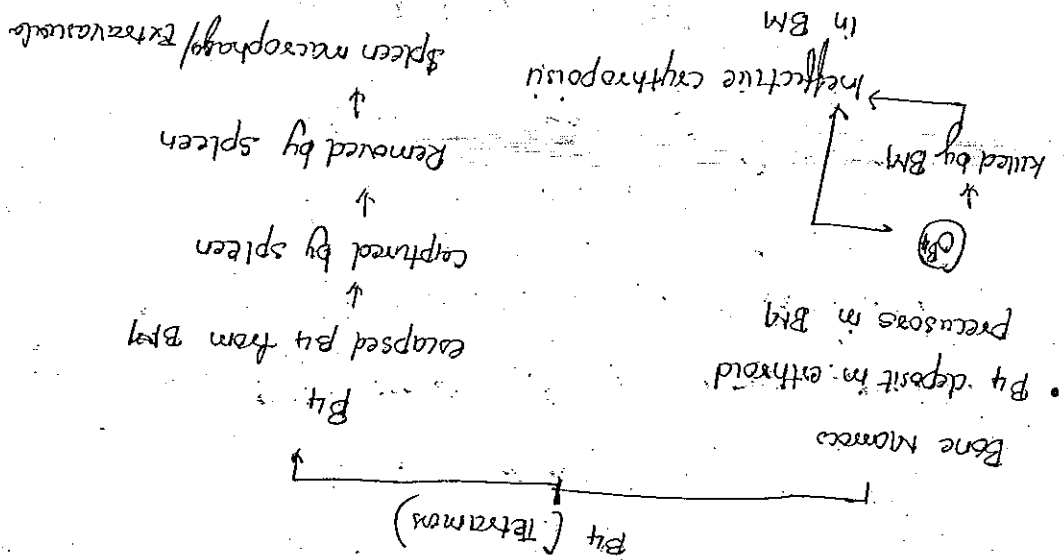 β4 (Tetramers)
Bone Marrow
• β4 deposit in erthroid
precusors in BM
β4
killed by BM
Ineffective erythropoisis
in BM
β4
escapsed β4 from BM
↓
Captured by spleen
↓
Removed by spleen
↓
Spleen macrophage/Extravascula